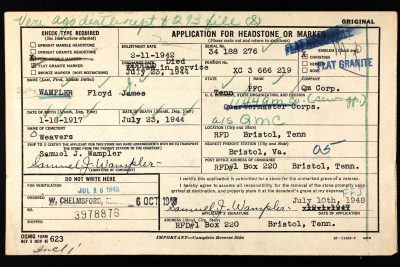 Vera ag death rept # 293 file (S)
ORIGINAL
CHECK TYPE REQUIRED
(See instructions attached)
UPRIGHT MARBLE HEADSTONE
UPRIGHT GRANITE HEADSTONE
FLAT GRANITE MARKER
BRONZE MARKER (NOT RESTRICTED)
ENLISTMENT DATE
2-11-1942
Died in service
July 23, 1944
APPLICATION FOR HEADSTONE OR MARKER
(Please make out and return in duplicate)
SERIAL NO.
34 188 276
PENSION NO.
XC 3 666 219
EMBLEM (Check one)
CHRISTIAN
HEBREW
NONE
FLAT GRANITE
NAME (Last, First, Middle Initial)
WAMPLER Floyd James
STATE
Tenn
RANK
PFC
Qm Corp.
Quartermaster Corps.
a/s QMC
DATE OF BIRTH (Month, Day, Year)
1-18-1917
DATE OF DEATH (Month, Day, Year)
July 23, 1944
NAME OF CEMETERY
Weavers
LOCATION (City and State)
RFD Bristol, Tenn
Samuel J. Wampler
Samuel J. Wampler
(SIGNATURE OF CONSIGNEE)
NEAREST FREIGHT STATION (City and State)
Bristol, Va.
05
POST OFFICE ADDRESS OF CONSIGNEE
RFD#1 Box 220 Bristol, Tenn.
DO NOT WRITE HERE
FOR VERIFICATION
JUL 16 1948
ORDERED
W. CHELMSFORD,
6 OCT 1948
3978876
I certify this application is submitted for a stone for the unmarked grave of a veteran.
I hereby agree to assume all responsibility for the removal of the stone promptly upon arrival at destination, and properly place it at the decedent's grave at my expense.
July 10th, 1948
Samuel J. Wampler
APPLICANT'S SIGNATURE
RFD#1 Box 220 Bristol, Tenn.
OQMG FORM 623
IMPORTANT—Complete Reverse Side